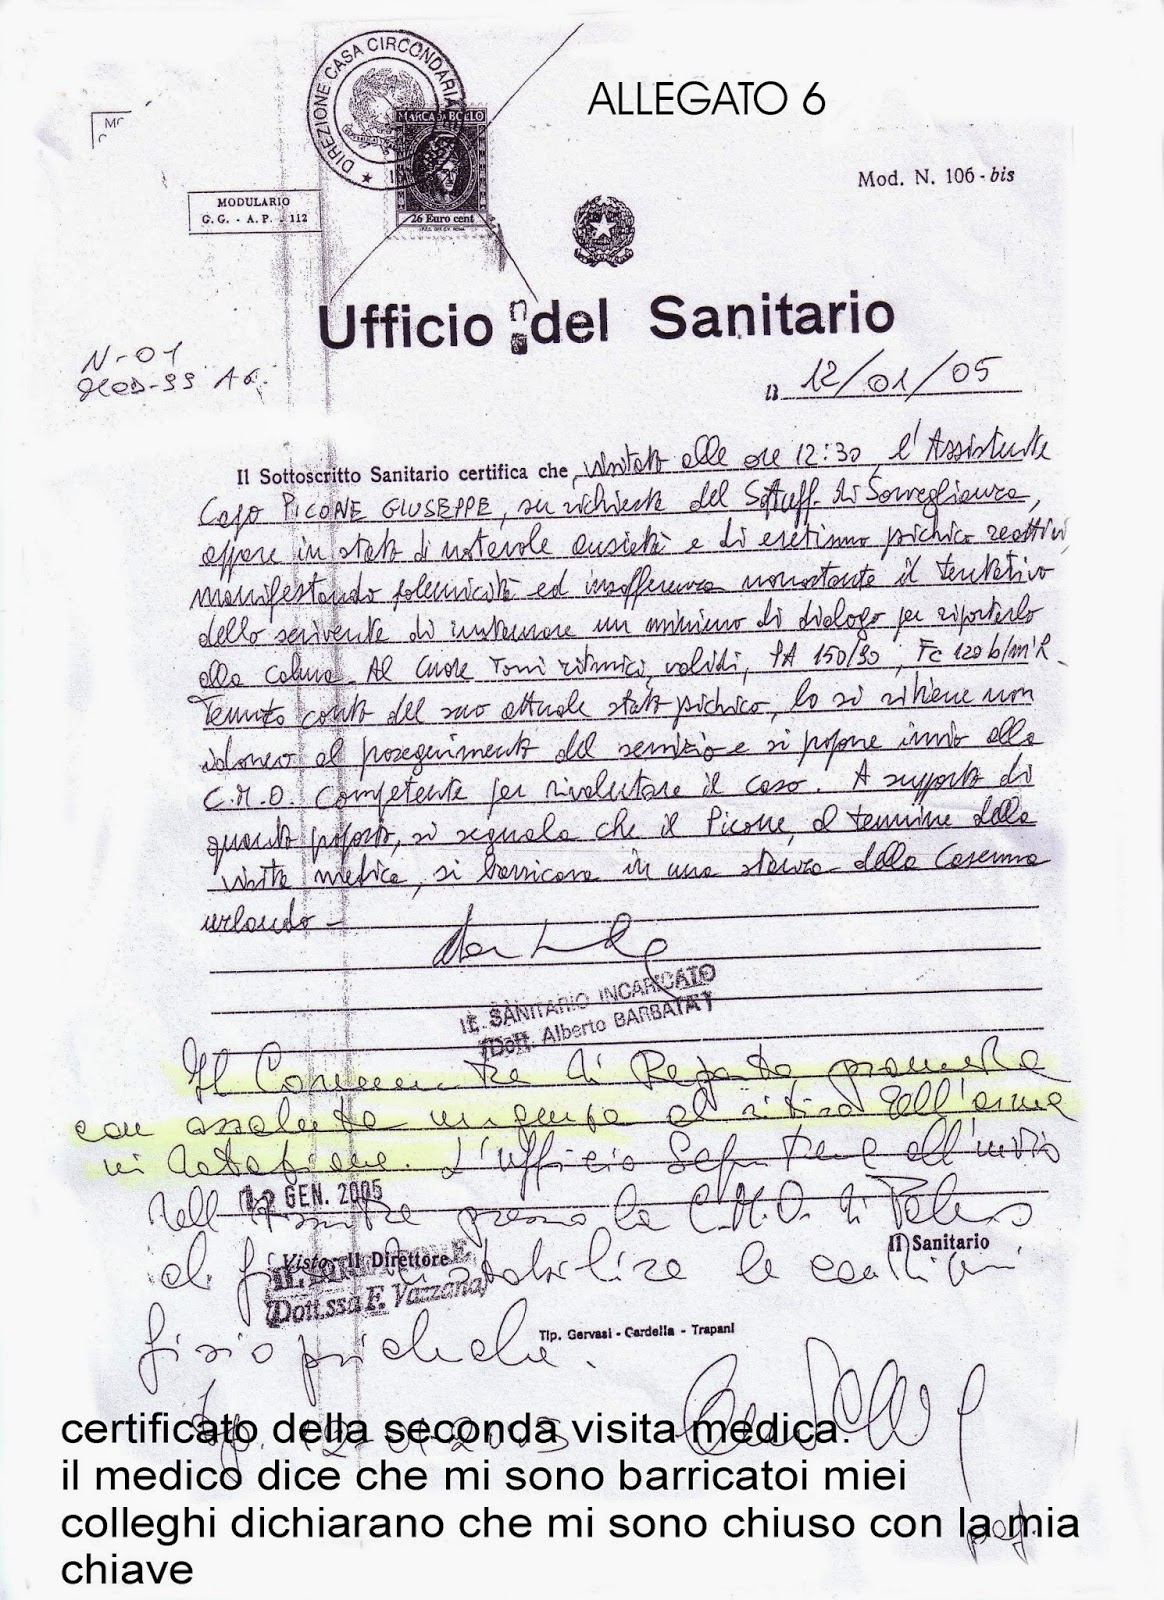 ALLEGATO 6
DIREZIONE CASA CIRCONDARIA
MARCA DA BOLLO
26 Euro cent
Mod. N. 106 - bis
MODULARIO
G. G. - A. P. - 112
Ufficio del Sanitario
N-01
12/01/05
Il Sottoscritto Sanitario certifica che, visitato alle ore 12:30, l'Assistente
Capo PICONE GIUSEPPE, su richiesta del Sottuff. di Sorveglianza,
appare in stato di notevole ansietà e di eretismo psichico reattivi,
manifestando polemicità ed insofferenza nonostante il tentativo
dello scrivente di instaurare un minimo di dialogo per riportarlo
alla calma. Al Cuore Toni ritmici, validi, PA 150/90, Fc 120 b/m'R.
Tenuto conto del suo attuale stato psichico, lo si ritiene non
idoneo al proseguimento del servizio e si propone invio alla
C.M.O. Competente per rivalutare il caso. A supporto di
quanto proposto, si segnala che il Picone, al termine della
visita medica, si barricava in una stanza della Caserma
urlando -
IL SANITARIO INCARICATO
(Dott. Alberto BARBATA')
Il Comandante di Reparto, provveda
con assoluta urgenza al ritiro dell'arma
in dotazione. L'ufficio Segreteria all'invio
12 GEN. 2005
dell' presso la C.M.O. di Palermo
Il Sanitario
Visto: Il Direttore
al fine di stabilire le condizioni
(Dott.ssa F. Vazzana)
Tip. Gervasi - Cardella - Trapani
fisio psichiche.
12-01-2005
certificato della seconda visita medica.
il medico dice che mi sono barricatoi miei
colleghi dichiarano che mi sono chiuso con la mia
chiave